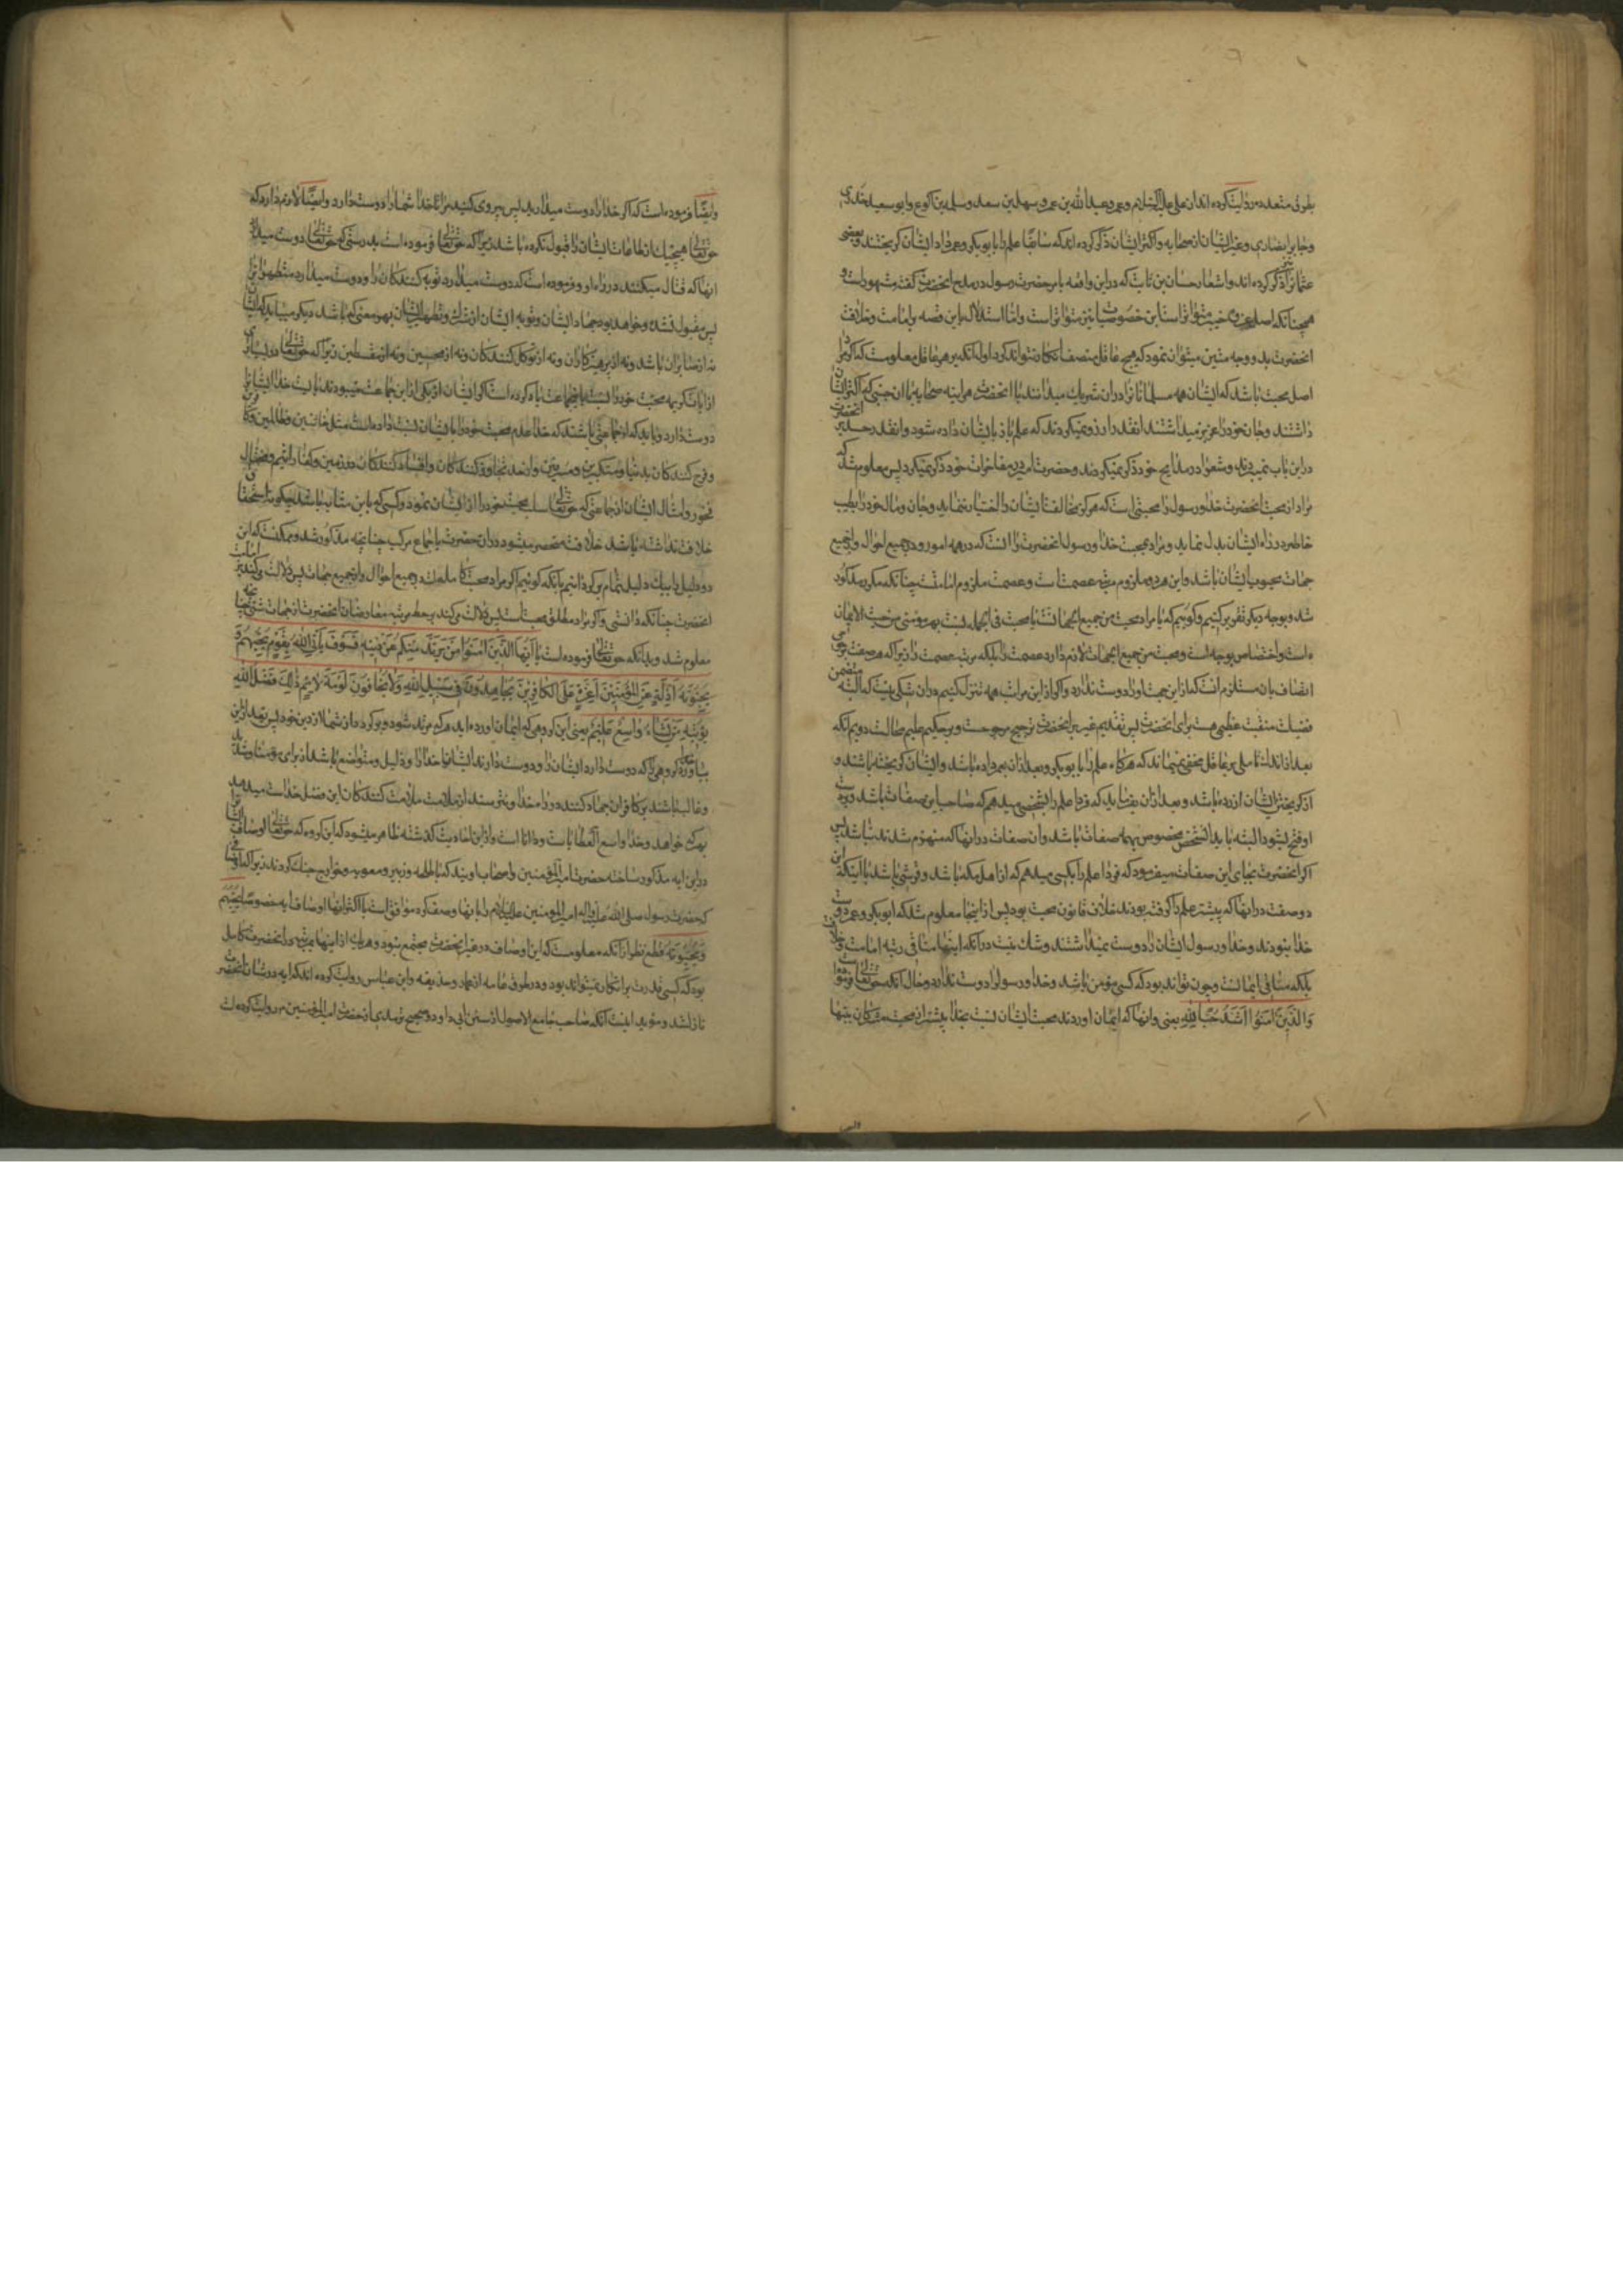 بطرق متعدده روایت کرده اند از علی علیه السلام و عمر و عبد الله بن عمر و سهل بن سعد و سلمة بن اکوع و ابو سعید خدری
و جابر انصاری و غیر ایشان از صحابه و اکثر ایشان ذکر کرده اند که سابقا علم را بابو بکر و عمر داد ایشان گریختند و بعضی
عثمان را نیز ذکر کرده اند و اشعار حسان بن ثابت که در این واقعه بامر حضرت رسول در مدح انحضرت گفت مشهور است و
همچنانکه اصل خبر متواتر است این خصوصیات نیز متواتر است و اما استدلال باین قصه بامامت و خلافت
انحضرت بد و وجه متین میتوان نمود که هیچ عاقل منصف انکار نتواند کرد اول انکه بر هر عاقل معلومست که اگر مراد
اصل محبت باشد که ایشان همه مسلمانانرا در ان شریك میدانند با انحضرت هر اینه صحابه با ان حبنی که اکثر ایشان
داشتند و جان خود را عزیز میداشتند انقدر ارزو نمیکردند که علم باز بایشان داده شود و انقدر حسد بر انحضرت
در این باب نمیبردند و شعرا در مدایح خود ذکر نمیکردند و حضرت امیر در مفاخرات خود ذکر نمیکرد پس معلوم شد که
مراد از محبت انحضرت خدا و رسول را محبتی است که هرگز مخالفت ایشان را اختیار ننماید و جان و مال خود را بطیب
خاطر در راه ایشان بدل نماید و مراد محبت خدا و رسول انحضرت را انست که در همه امور و در جمیع احوال و از جمیع
جهات محبوب ایشان باشد و این هر دو ملزوم مرتبه عصمت است و عصمت ملزوم امامت چنانکه مکرر مذکور
شد و بوجه دیگر تقریر کنیم و گوییم که یا مراد محبت من جمیع الجهات است یا محبت فی الجمله نسبت بهر مؤمنی من حیث الایمان
است و اختصاص بوجه است و محبت من جمیع الجهات لازم دارد عصمت را بلکه مرتبه عصمت را زیرا که هر صفت مرجوحی
اتصاف بان مستلزم انست که از این جهت او را دوست ندارد و اگر از این مراتب همه تنزل کنیم در ان شکی نیست که البته متضمن
فضیلت و منقبت عظیمی هست برای انحضرت پس تقدیم غیر بر انحضرت ترجیح مرجوحست و بر حکیم علیم محالست دویم انکه
بعد از اندك تاملی بر عاقل مخفی نمیماند که هرگاه علم را بابو بکر و بعد از ان بعمر داده باشد و ایشان گریخته باشند و
از گریختن ایشان ازرده باشد و بعد از ان بفرماید که فردا علم را بشخصی میدهم که صاحب این صفات باشد و بر دست
او فتح بشود البته باید ان شخص مخصوص بهمه صفات باشد و ان صفات در انها که منهزم شدند نباشد پس
اگر انحضرت بجای این صفات میفرمود که فردا علم را بکسی میدهم که از اهل مکه باشد و قرشی باشد با اینکه این
دو صفت در انها که پیشتر علم را گرفته بودند خلاف قانون صحبت بود پس از اینجا معلوم شد که ابو بکر و عمر دوست
خدا نبودند و خدا و رسول ایشان را دوست نمیداشتند و شك نیست در انکه اینها منافی رتبه امامت و خلافت
بلکه منافی ایمانست و چون تواند بود که کسی مؤمن باشد و خدا و رسول را دوست ندارد و حال انکه حق تعالی فرموده است
وَالَّذِینَ امَنُوا اَشَدُّ حُبًّا لِلّٰهِ یعنی و انها که ایمان اوردند محبت ایشان نسبت بخدا بیشتر از محبت مشرکان ببتها
وایضا فرموده است که اگر خدا را دوست میدارید پس پیروی کنید مرا تا خدا شما را دوست دارد و ایضا لازم دارد که
حق تعالی هیچیك از طاعات ایشان را قبول نکرده باشد زیرا که حق تعالی فرموده است بدرستی که حق تعالی دوست میدارد
انها که قتال میکنند در راه او و فرموده است که دوست میدارد توبه کنندکان را و دوست میدارد متطهرانرا
پس مقبول نشده و خواهد بود جهاد ایشان و توبه ایشان از شرك و تطهیر ایشان بهر معنی که باشد و دیگر میباید که ایشان
نه از صابران باشند و نه از پرهیزکاران و نه از توکل کنندکان و نه از محسنین و نه از مقسطین زیرا که حق تعالی در بسیاری
از ایات کریمه محبت خود را نسبت باینجماعت یاد کرده است اگر ایشان از یکی از این جماعت میبودند بایست خدا ایشانرا
دوست دارد و باید که از جماعتی باشند که خدا عدم محبت خود را بایشان نسبت داده است مثل خائنین و ظالمین و کافرین
و فرح کنندکان بدنیا و متکبرین و مسرفین و از حد تجاوز کنندکان و افساد کنندکان در زمین و کفار اثیم و مختال
فخور و امثال ایشان از جماعتی که حق تعالی سلب محبت خود را از ایشان نموده و کسی که باین مثابه باشد چگونه استحقاق
خلافت داشته باشد خلافت منحصر میشود در ان حضرت باجماع مرکب چنانچه مذکور شد و ممکنست که این
دو دلیل را بیك دلیل تمام برگردانیم بانکه گوئیم اگر مراد محبت کامله است در جمیع احوال و از جمیع جهات پس دلالت میکند بر امامت
انحضرت چنانکه دانستی و اگر مراد مطلق محبت است پس دلالت میکند بر حط مرتبه معارضان انحضرت از جهات شتی چنانچه
معلوم شد و بدانکه حق تعالی فرموده است یا اَیُّهَا الَّذِینَ امَنُوا مَنْ یَرْتَدَّ مِنْکُمْ عَنْ دِینِهِ فَسَوْفَ یَأْتِی اللّٰهُ بِقَوْمٍ یُحِبُّهُمْ وَ
یُحِبُّونَهُ اَذِلَّةٍ عَلَی الْمُؤْمِنِینَ اَعِزَّةٍ عَلَی الْکافِرِینَ یُجاهِدُونَ فِی سَبِیلِ اللّٰهِ وَلا یَخافُونَ لَوْمَةَ لائِمٍ ذٰلِكَ فَضْلُ اللّٰهِ
یُؤْتِیهِ مَنْ یَشاءُ وَاسِعٌ عَلِیمٌ یعنی ای گروهی که ایمان اورده اید هر که مرتد شود و برگردد از شما از دین خود پس بعد از این
بیاورد خدا گروهی را که دوست دارد ایشان را و دوست دارند ایشان خدا را و ذلیل و متواضع باشند از برای مؤمنان و شدید
و غالب باشند بر کافران جهاد کنند در راه خدا و نترسند از ملامت ملامت کنندکان این فضل خداست میدهد
بهر که خواهد و خدا واسع العطا یاست و دانا است و از این احادیث گذشته ظاهر میشود که این گروه که حق تعالی اوصاف ایشانرا
در این ایه مذکور ساخته حضرت امیر المؤمنین و اصحاب اویند که با طلحه و زبیر و معویه و خوارج جنك کردند زیرا که اوصافی
که حضرت رسول صلی الله علیه واله امیر المؤمنین علیه السلام را بانها وصف کرد موافق است با اکثر انها اوصاف ایه خصوصا یُحِبُّهُمْ
وَیُحِبُّونَهُ قطع نظر از انکه معلومست که این اوصاف در غیر انحضرت مجتمع نبود و هر یك از اینها بمرتبه در انحضرت کامل
بود که کسی قدرت بر انکار نمیتواند بود و در طرق عامه از عمار و حذیفه و ابن عباس روایت کرده اند که ایه در شان انحضرت
نازل شد و مؤید اینست انکه صاحب جامع الاصول از سنن ابی داود و صحیح ترمذی از حضرت امیر المؤمنین ع روایت کرده است